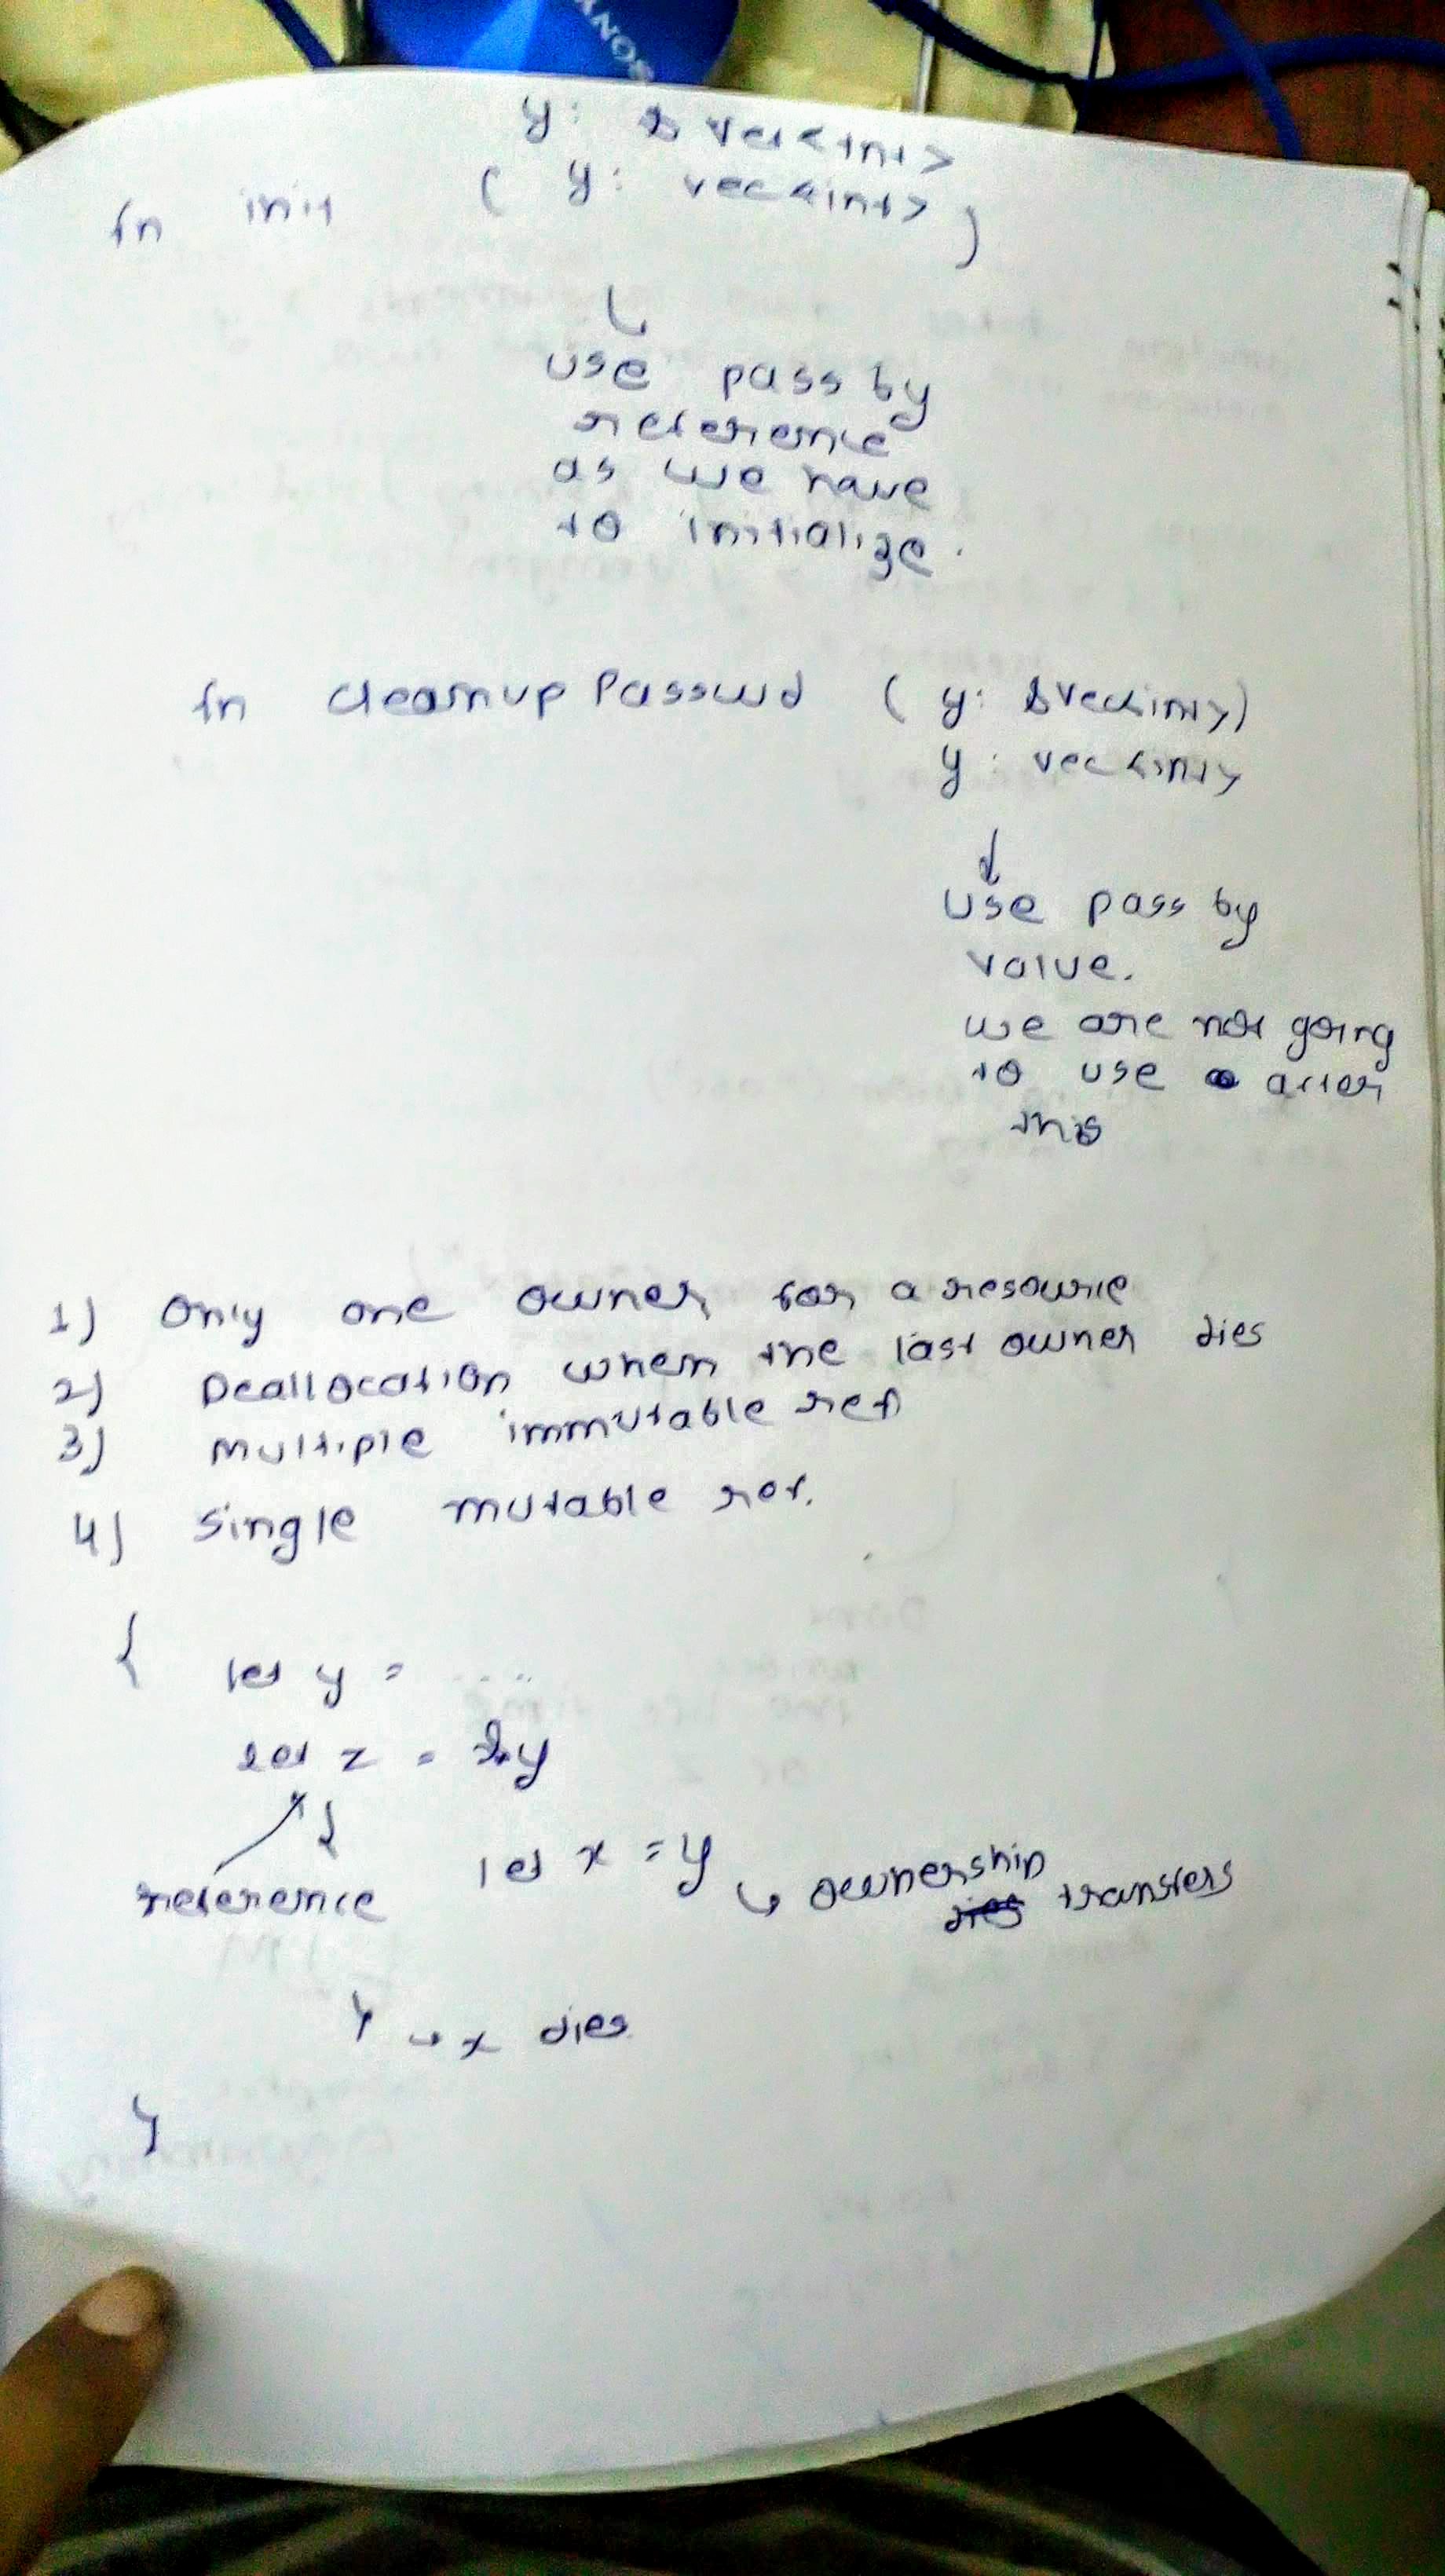 SONY
y: & vec<int>
fn init ( y: vec<int> )
use pass by
reference
as we have
to initialize.
fn cleanup Passwd ( y: &vec<int>)
y: vec<int>
use pass by
value.
we are not going
to use after
this
1) Only one owner for a resource
2) Deallocation when the last owner dies
3) multiple immutable ref
4) Single mutable ref.
{ let y = ....
let z = &y
{
reference
let x = y ↳ ownership dies transfers
} → x dies
}